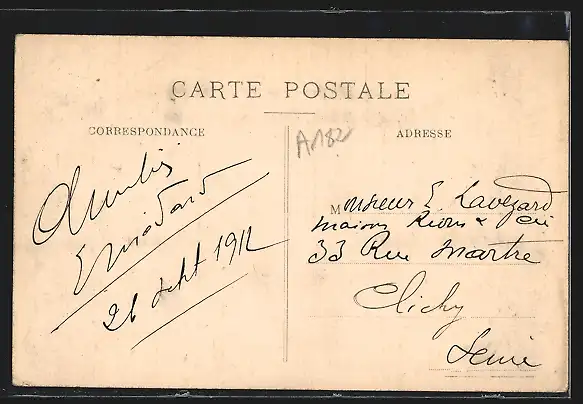 CARTE POSTALE
CORRESPONDANCE
ADRESSE
A182
Amitiés
E Médard
26 Sept 1912
Monsieur E. Lavezard
maison Rions & Cie
33 Rue Martre
Clichy
Seine